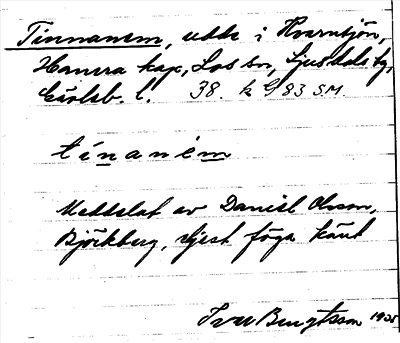 Tinnanem, udde i Kvarntjön,
Hamra kap, Los sn, Ljusdals tg,
Gävleb. l. 38. k G 83 SM
tinaném
Meddelat av Daniel Olsson,
Björkberg, djest föga känt
Ivar Bengtsson 1935